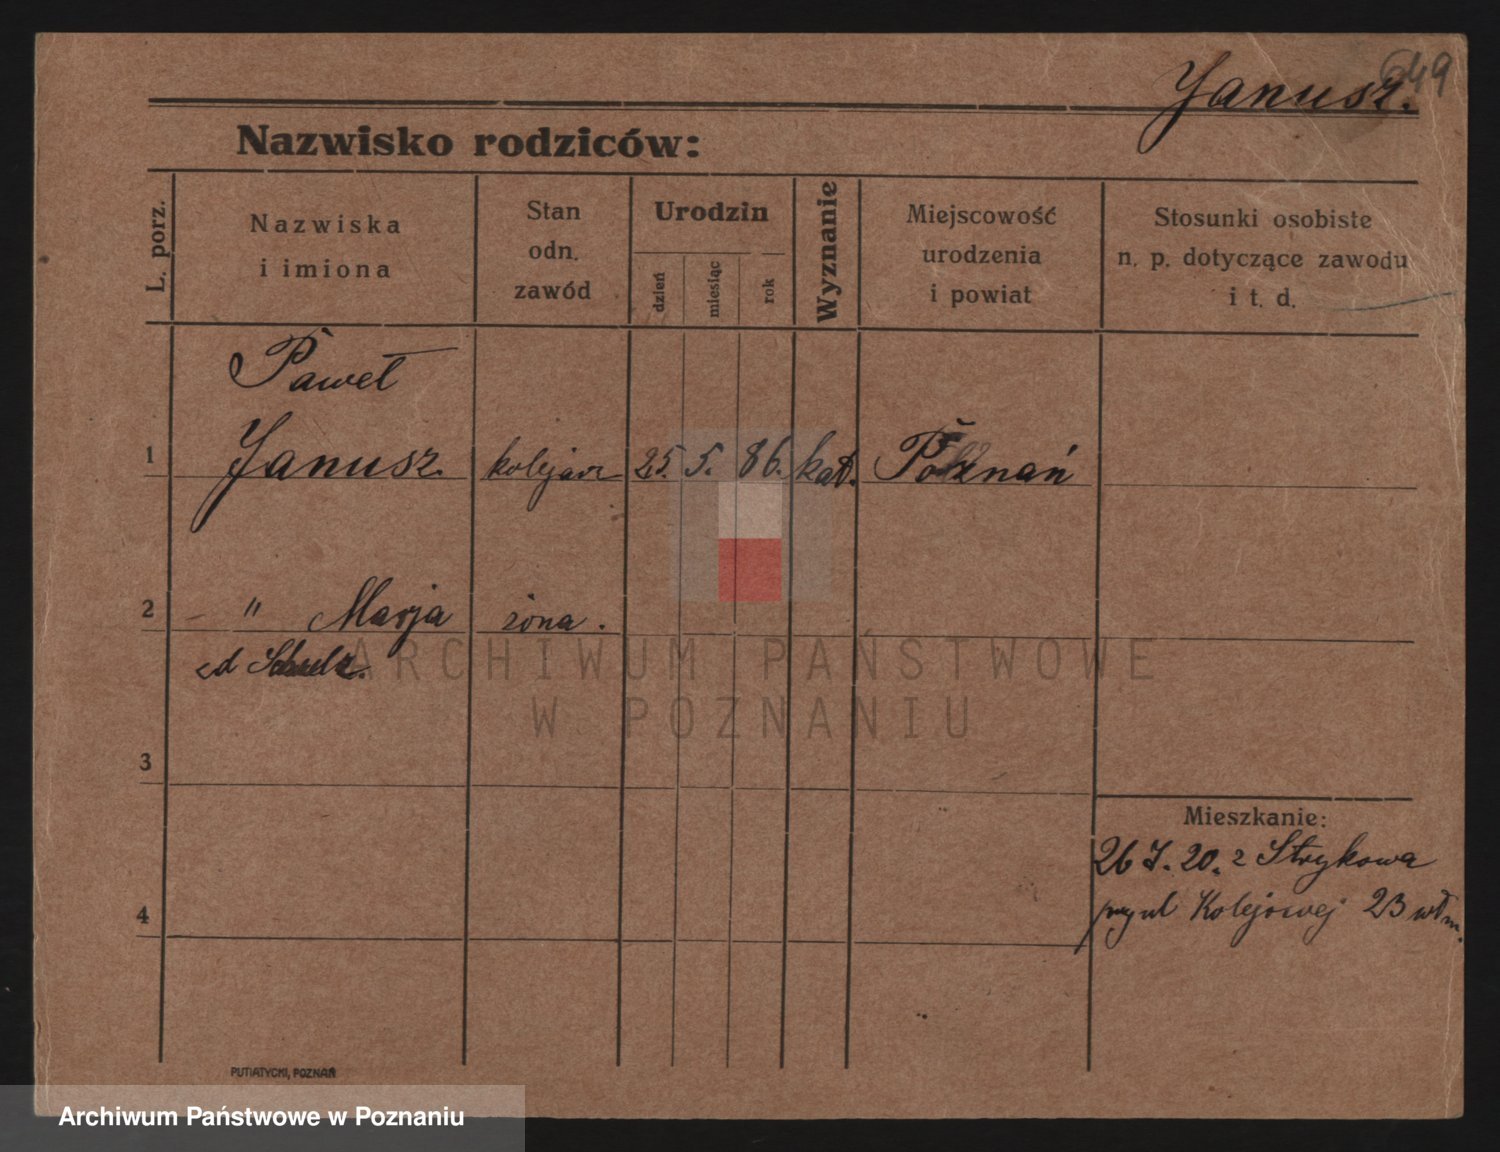 649
Janusz.
Nazwisko rodziców:
L. porz.
Nazwiska
i imiona
Stan
odn.
zawód
Urodzin
dzień
miesiąc
rok
Wyznanie
Miejscowość
urodzenia
i powiat
Stosunki osobiste
n. p. dotyczące zawodu
i t. d.
Paweł
1 Janusz. kolejarz 25. 5. 86. kat. Poznań
2 – " Marja żona.
Schulz.
ARCHIWUM PAŃSTWOWE
W POZNANIU
3
Mieszkanie:
26 7. 20. z Strykowa
przy ul Kolejowej 23 włm.
4
PUTIATYCKI, POZNAŃ
Archiwum Państwowe w Poznaniu